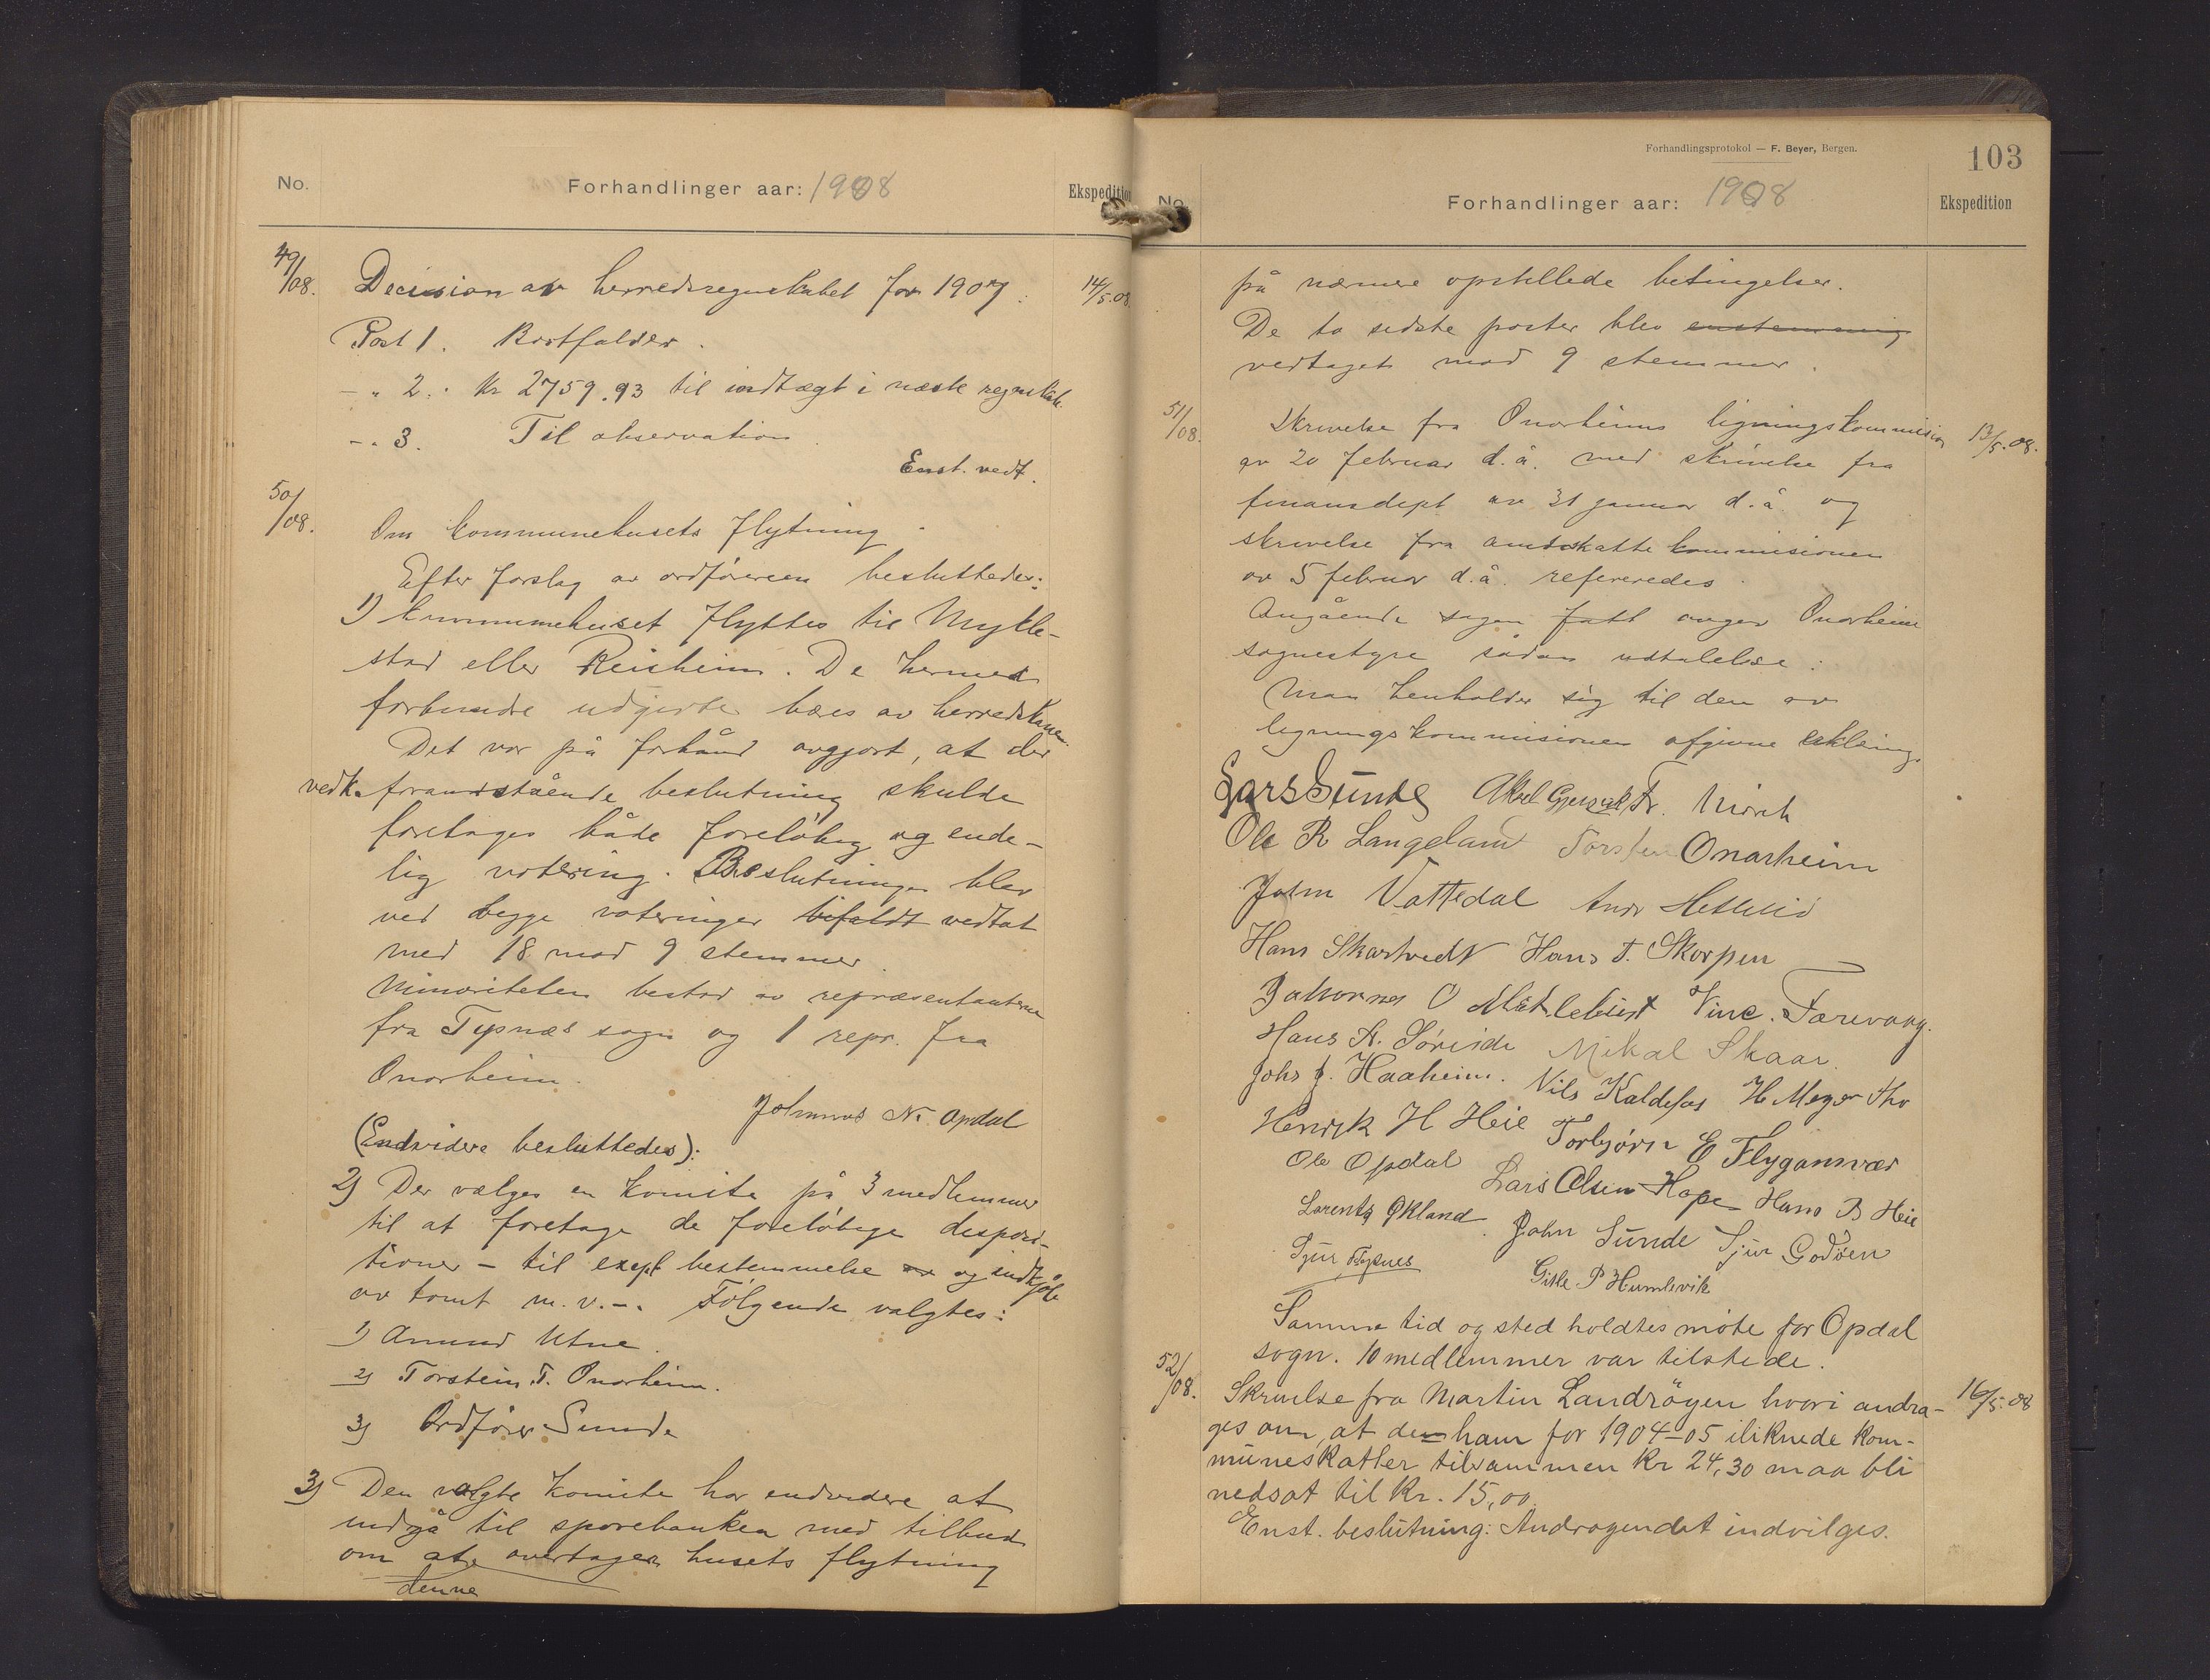 No.
Forhandlinger aar: 1908
Ekspedition
49/08.
Decision av herredsregnskabet for 1907.
14/5.08.
Post 1. Bortfalder.
-„ 2. kr 2759.93 til indtægt i næste regnskab.
-„ 3. Til observation.
Enst. vedt.
50/08.
Om kommunehusets flytning.
Efter forslag av ordföreren besluttedes:
1) Kommunehuset flyttes til Mykle-
stad eller Reisheim. De hermed
forbundne udgifter bæres av herredskassen.
Det var på forhånd avgjort, at der
vedk. foranstående beslutning skulde
foretages både foreløbig og ende-
lig votering. Beslutningen blev
ved begge voteringer bifaldt vedtat
med 18 mod 9 stemmer.
Minoriteten bestod av repræsentanterne
fra Tysnæs sogn og 1 repr. fra
Onarheim.
Johannes N. Opdal
(Endvidere besluttedes):
2) Der vælges en komite på 3 medlemmer
til at foretage de foreløbige disposi-
tioner - til exept bestemmelse av og indkjøb
av tomt m.v. -. Følgende valgtes:
1) Amund Utne.
2) Torstein T. Onarheim.
3) Ordfører Sunde
3) Den valgte komite har endvidere at
indgå til sparebanken med tilbud
om at overtagen husets flytning
denne
Forhandlingsprotokol — F. Beyer, Bergen.
103
No.
Forhandlinger aar: 1908
Ekspedition
på nærmere opstillede betingelser.
De to sidste poster blev enstemmig
vedtaget mod 9 stemmer.
51/08.
Skrivelse fra Onarheims ligningskommision
13/5.08.
av 20 februar d.å. med skrivelse fra
finansdept av 31 januar d.å. og
skrivelse fra amtsskattekommisionen
av 5 februar d.å. refereredes.
Angående sagen fatt avgav Onarheim
sognestyre sådan udtalelse:
Man henholder sig til den av
ligningskommisionen afgivne erklæring.
Lars Sunde Aksel Gjerszak Fr. Hirsch
Ole R Langeland Torstein Onarheim
John Vattedal Andr Hetlevid
Hans Skartvedt Hans T. Skorpen
Johannes O Vinc. Færevaag.
Hans A. Søreide Mikal Skaar.
Johs J. Haaheim. Nils Kaldefos H Meyer Tho
Henrik H Heie Torbjørn E Flygansvær
Ole Opdal Lars Olsen Hope Hans B Heie
Lorentz Økland John Sunde Sjur Godøen
Sjur Tysnes Gitle P Humlevik
Samme tid og sted holdtes møte for Opdal
sogn. 10 medlemmer var tilstede.
52/08.
Skrivelse fra Martin Landrøyen hvori andra-
16/5.08
ges om, at de ham for 1904-05 iliknede kom-
muneskatter tilsammen Kr 24,30 maa bli
nedsat til Kr. 15,00.
Enst. beslutning: Andragendet indvilges.